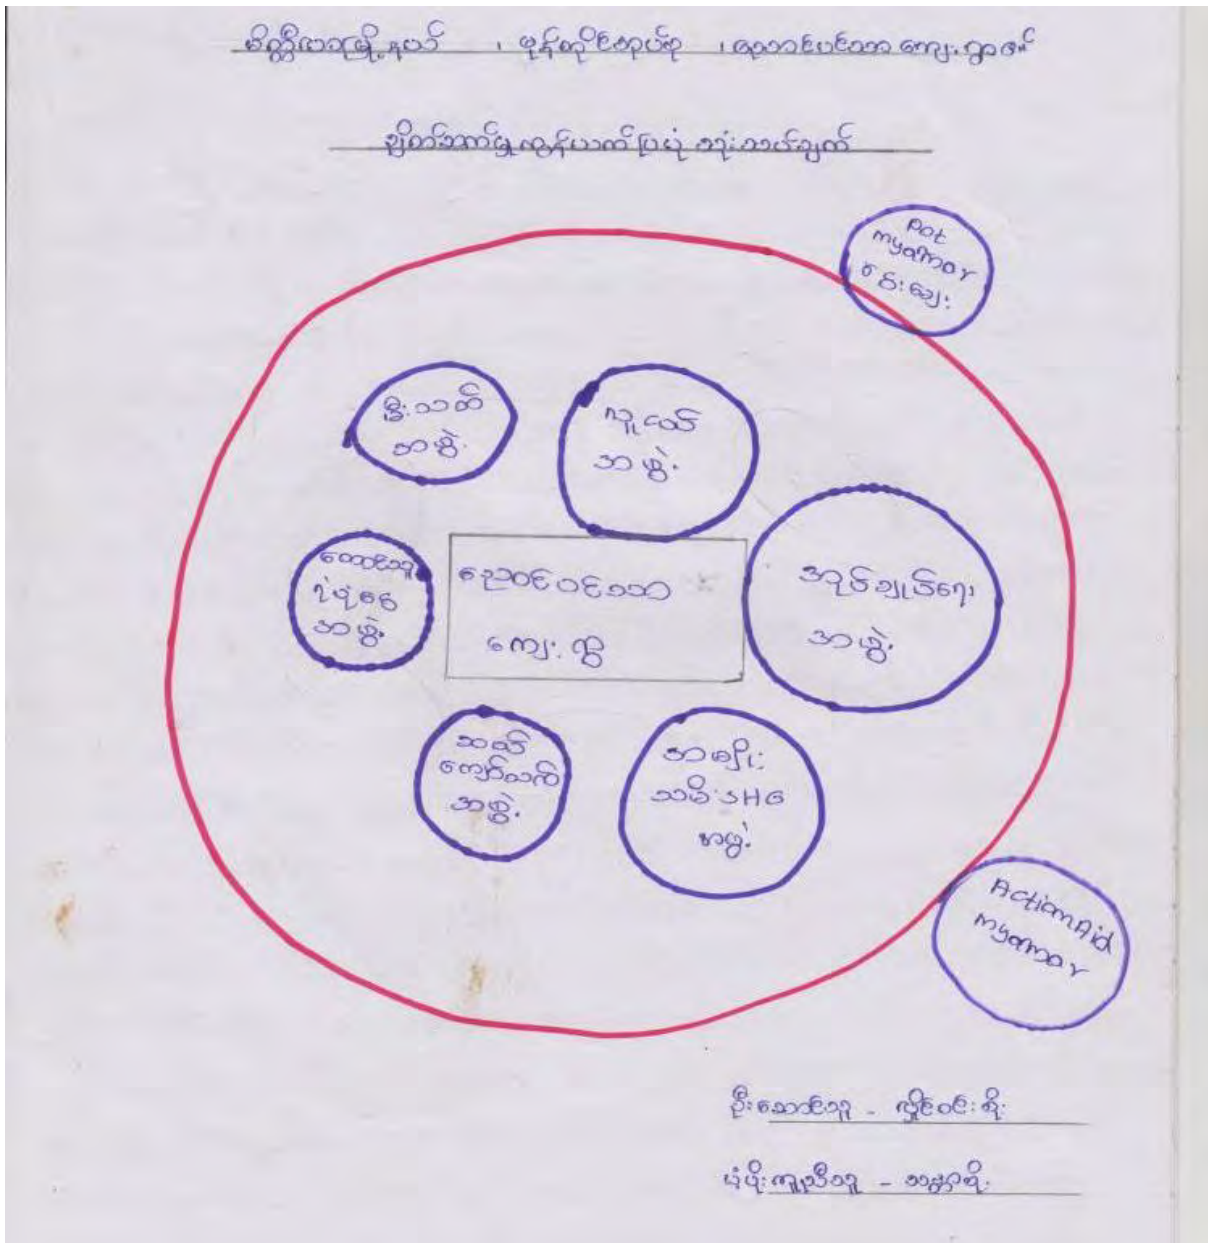 မိတ္ထီလာမြို့နယ် ၊ မုန်တိုင်အုပ်စု ၊ ညောင်ပင်သာ ကျေးရွာ၏
ချိတ်ဆက်မှုကွန်ယက်ပြပုံ သုံးသပ်ချက်
Pact
myanmar
မီးသတ်
အဖွဲ့
လူငယ်
အဖွဲ့
တောင်သူ
အဖွဲ့
ညောင်ပင်သာ
ကျေးရွာ
အုပ်ချုပ်ရေး
အဖွဲ့
ဆယ်
အဖွဲ့
အမျိုး
သမီး SHG
အဖွဲ့
ActionAid
myanmar
ဦးဆောင်သူ -
ပံ့ပိုးကူညီသူ -